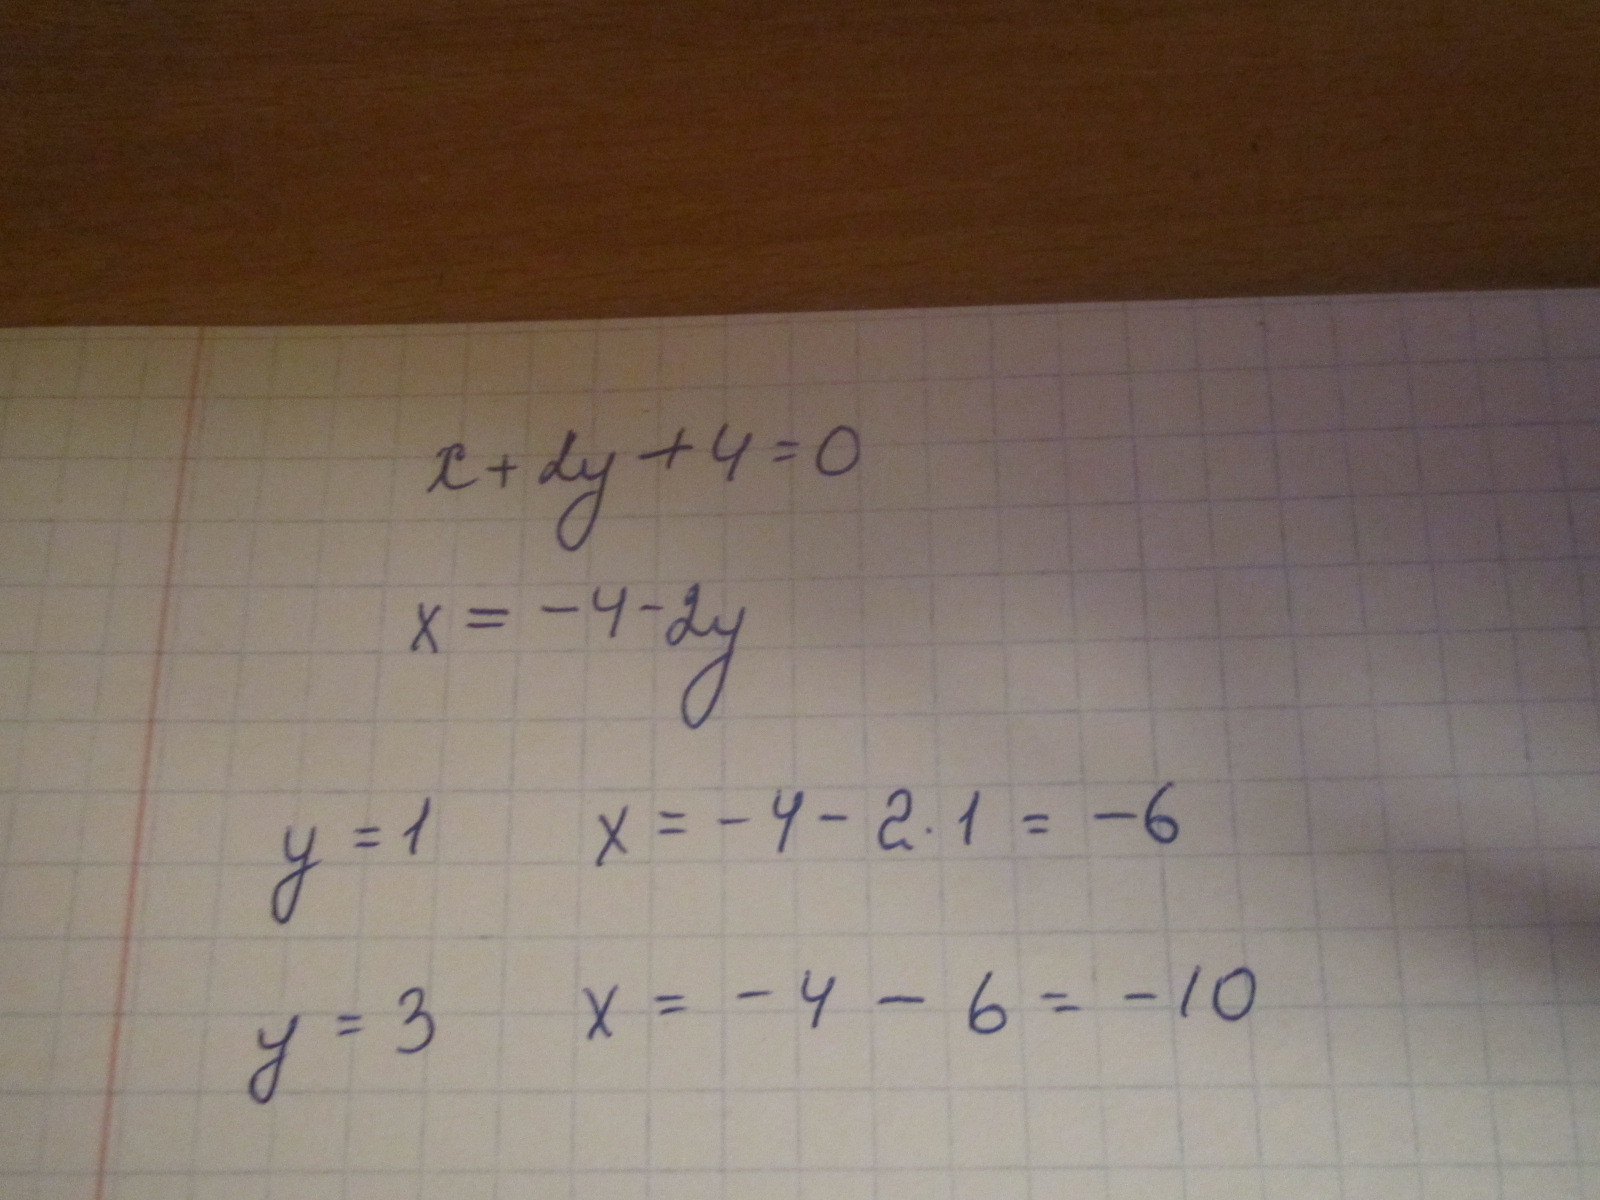 x+2y+4=0
x=-4-2y
y=1 x=-4-2·1=-6
y=3 x=-4-6=-10